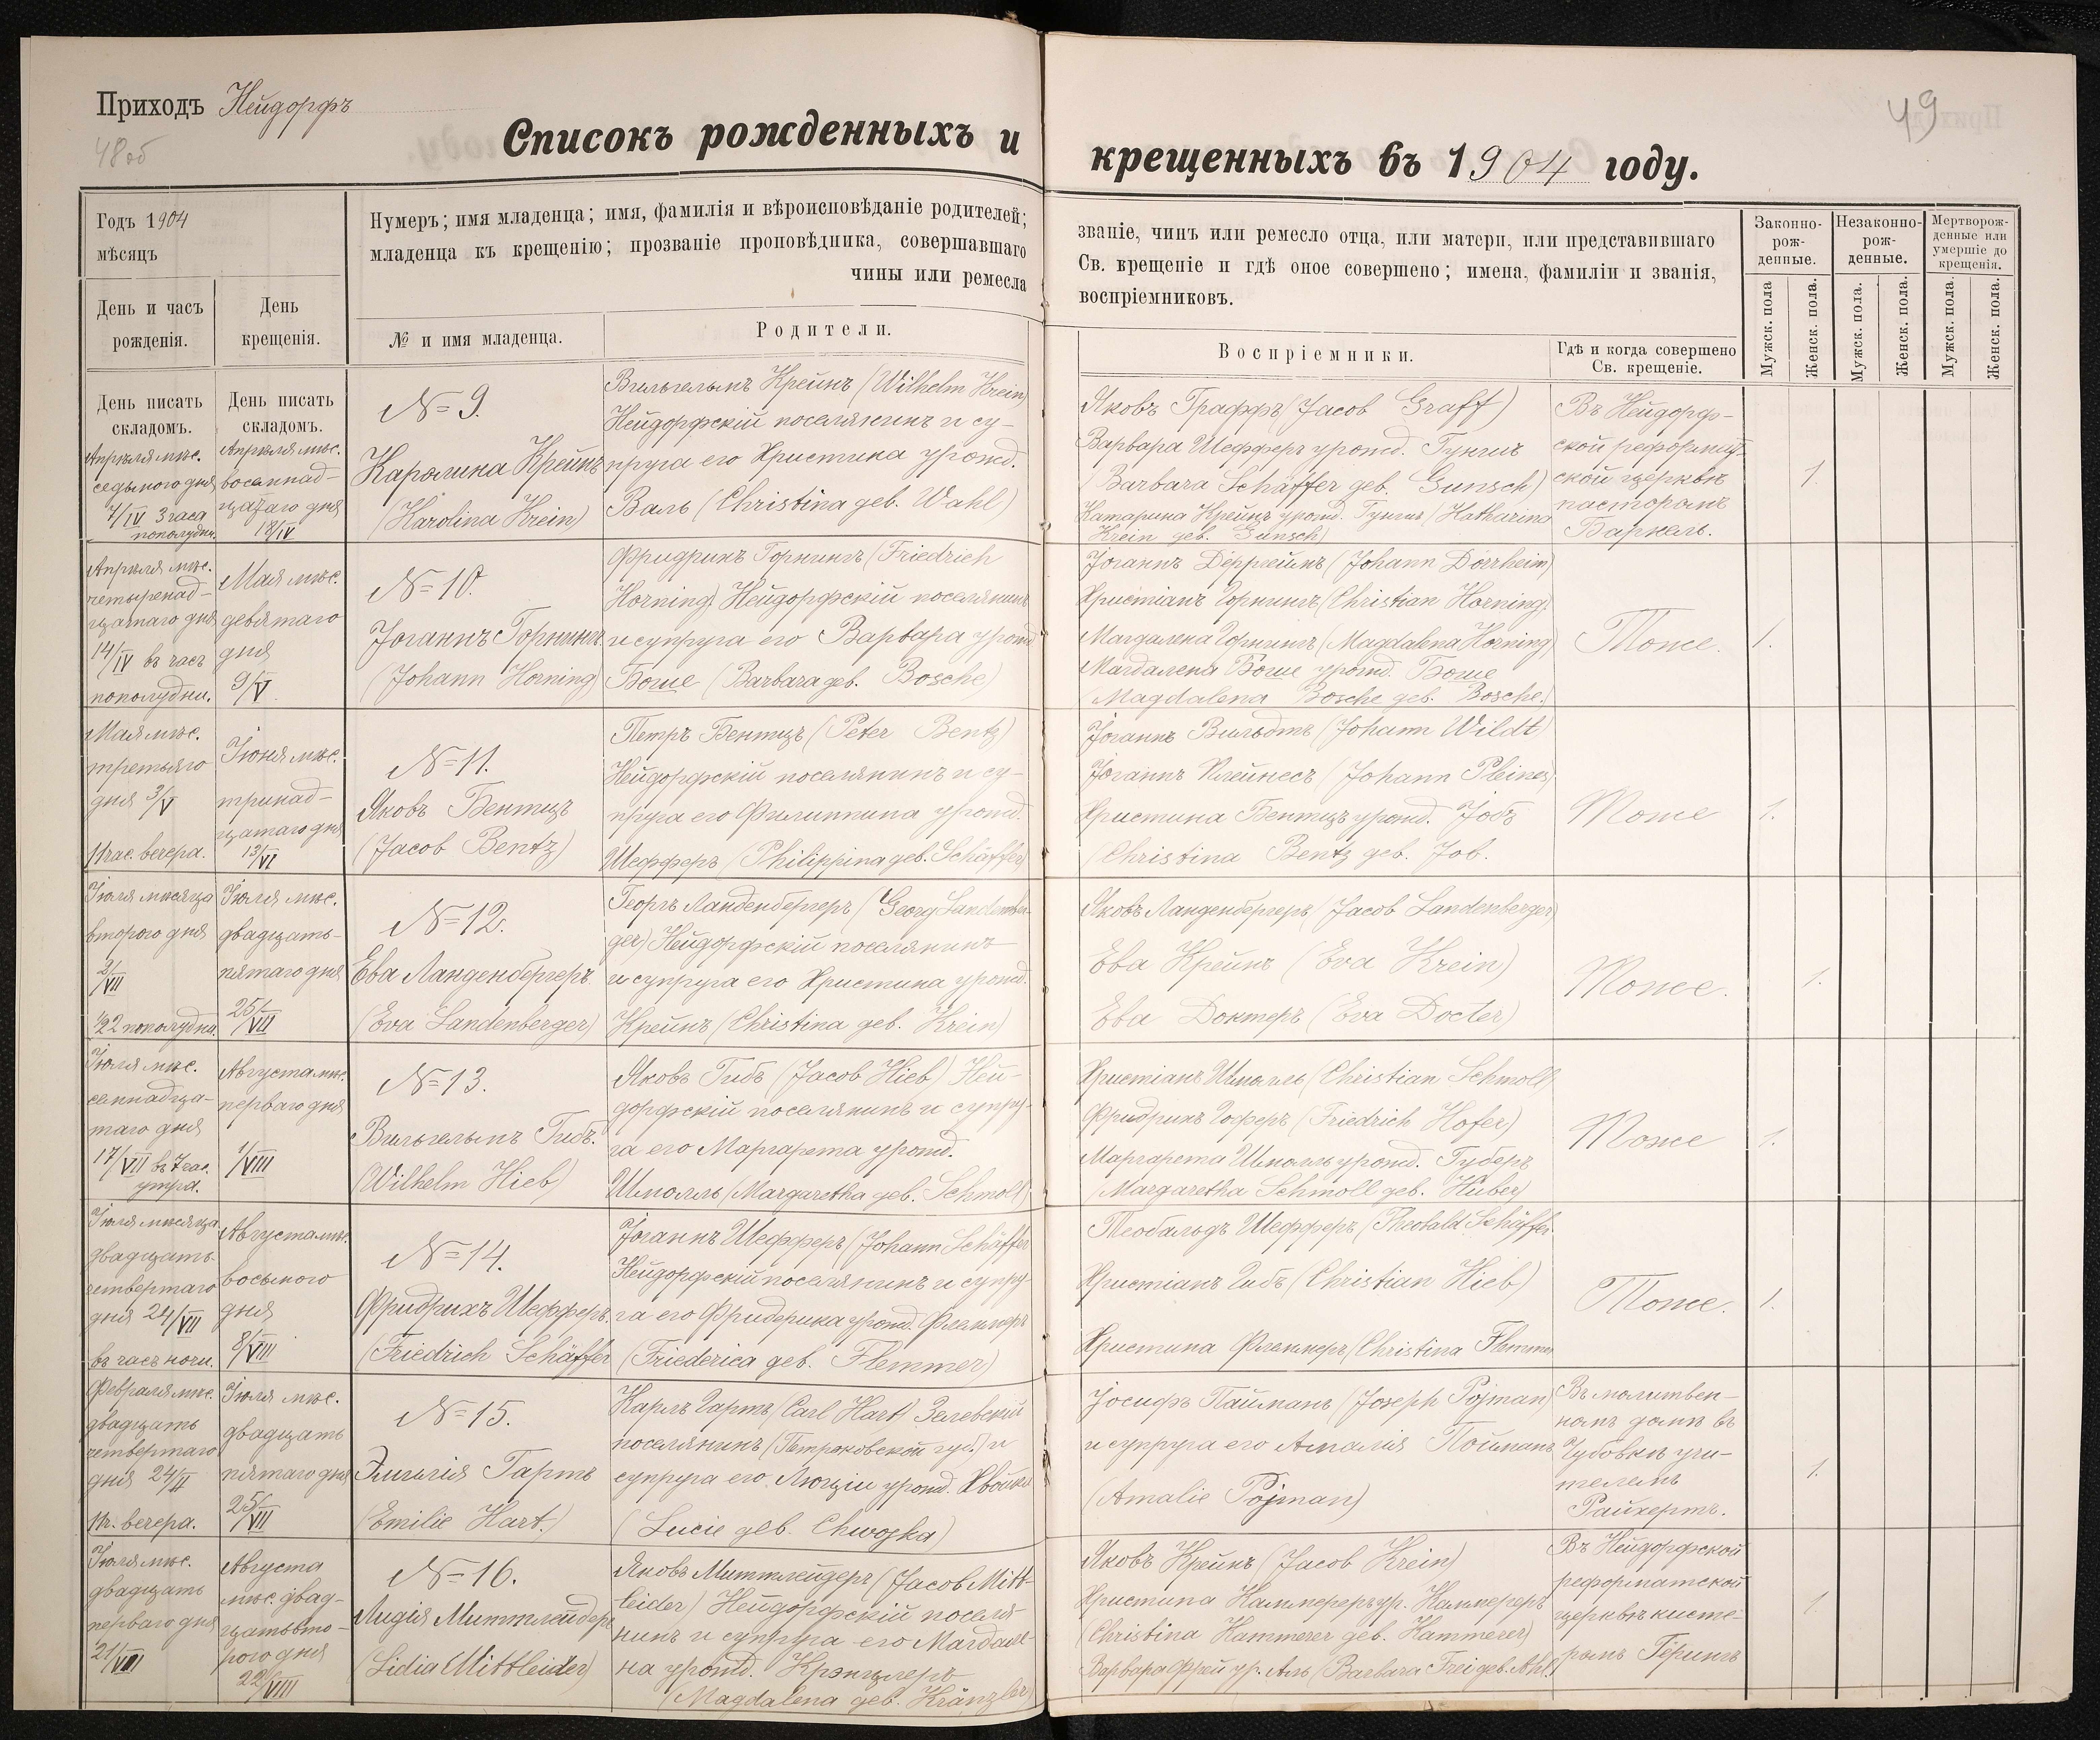 Приходъ Нейдорфъ
48об
49
Списокъ рожденныхъ и крещенныхъ въ 1904 году.
Годъ 1904
мѣсяцъ
Нумеръ; имя младенца; имя, фамилія и вѣроисповѣданіе родителей;
младенца къ крещенію; прозваніе проповѣдника, совершавшаго
чины или ремесла
званіе, чинъ или ремесло отца, или матери, или представившаго
Св. крещеніе и гдѣ оное совершено; имена, фамиліи и званія,
воспріемниковъ.
Законно-
рож-
денные.
Незаконно-
рож-
денные.
Мертворож-
денные или
умершіе до
крещенія.
День и часъ
рожденія.
День
крещенія.
№ и имя младенца.
Родители.
Воспріемники.
Гдѣ и когда совершено
Св. крещеніе.
Мужск. пола
Женск. пола.
Мужск. пола.
Женск. пола.
Мужск. пола.
Женск. пола.
День писать
складомъ.
День писать
складомъ.
Апрѣля мѣс.
седьмого дня
7/IV 3 часа
пополудни.
Апрѣля мѣс.
восемнад-
цатаго дня
18/IV
№ 9.
Каролина Крейнъ
(Karolina Krein)
Вильгельмъ Крейнъ (Wilhelm Krein)
Нейдорфскій поселянинъ и су-
пруга его Христина урожд.
Валь (Christina geb. Wahl)
Яковъ Граффъ (Jacob Graff)
Варвара Шефферъ урожд. Гуншъ
(Barbara Schäffer geb. Gunsch)
Катарина Крейнъ урожд. Гуншъ (Katharina
Krein geb. Gunsch)
Въ Нейдорф-
ской реформат-
ской церквѣ
пасторомъ
Баркель.
1.
Апрѣля мѣс.
четырнад-
цатаго дня
14/IV въ часъ
пополудни.
Мая мѣс.
девятаго
дня
9/V.
№ 10.
Јоганнъ Горнингъ
(Johann Horning)
Фридрихъ Горнингъ (Friedrich
Horning) Нейдорфскій поселянинъ
и супруга его Варвара урожд.
Боше (Barbara geb. Bosche)
Јоганнъ Дёрргеймъ (Johann Dörrheim)
Христіанъ Горнингъ (Christian Horning)
Магдалена Горнингъ (Magdalena Horning)
Магдалена Боше урожд. Боше
(Magdalena Bosche geb. Bosche.)
Тоже.
1.
Мая мѣс.
третьяго
дня 3/V
11 час. вечера.
Јюня мѣс.
тринад-
цатаго дня
13/VI
№ 11.
Яковъ Бентцъ
(Jacob Bentz)
Петръ Бентцъ (Peter Bentz)
Нейдорфскій поселянинъ и су-
пруга его Филиппина урожд.
Шефферъ (Philippina geb. Schäffer)
Јоганнъ Вильдтъ (Johann Wildt)
Јоганнъ Плейнесъ (Johann Pleines)
Христина Бентцъ урожд. Јобъ
(Christina Bentz geb. Job.
Тоже
1.
Јюля мѣсяца
второго дня
2/VII
½2 пополудни.
Јюля мѣс.
двадцать-
пятаго дня
25/VII
№ 12.
Ева Ланденбергеръ
(Eva Landenberger)
Георгъ Ланденбергеръ (Georg Landenber-
ger) Нейдорфскій поселянинъ
и супруга его Христина урожд.
Крейнъ (Christina geb. Krein)
Яковъ Ланденбергеръ (Jacob Landenberger)
Ева Крейнъ (Eva Krein)
Ева Доктеръ (Eva Docter)
Тоже.
1.
Јюля мѣс.
семнадца-
таго дня
17/VII въ 7 час.
утра.
Августа мѣс.
перваго дня
1/VIII
№ 13.
Вильгельмъ Гибъ.
(Wilhelm Hieb)
Яковъ Гибъ (Jacob Hieb) Ней-
дорфскій поселянинъ и супру-
га его Маргарета урожд.
Шмолль (Margaretha geb. Schmoll)
Христіанъ Шмолль (Christian Schmoll)
Фридрихъ Гоферъ (Friedrich Hofer)
Маргарета Шмолль урожд. Губеръ
(Margaretha Schmoll geb. Huber)
Тоже
1.
Јюля мѣсяца
двадцать-
четвертаго
дня 24/VII
въ часъ ночи.
Августа мѣс.
восьмого
дня
8/VIII
№ 14.
Фридрихъ Шефферъ.
(Friedrich Schäffer
Јоганнъ Шефферъ (Johann Schäffer
Нейдорфскій поселянинъ и супру-
га его Фридерика урожд. Флеммеръ
(Friederica geb. Flemmer)
Теобальдъ Шефферъ (Theobald Schäffer
Христіанъ Гибъ (Christian Hieb)
Христина Флеммеръ (Christina Flemmer
Тоже.
1.
Февраля мѣс.
двадцать
четвертаго
дня 24/II
11 ч. вечера.
Јюля мѣс.
двадцать
пятаго дня
25/VII
№ 15.
Эмилія Гартъ
(Emilie Hart.)
Карлъ Гартъ (Carl Hart) Зелевскій
поселянинъ (Петроковской губ.) и
супруга его Люціи урожд. Хвойка
(Lucie geb. Chwojka)
Јосифъ Пойманъ (Joseph Pojman)
и супруга его Амалія Пойманъ
(Amalie Pojman)
Въ молитвен-
номъ домѣ въ
Чубовкѣ учи-
телемъ
Райхертъ.
1.
Јюля мѣс.
двадцать
перваго дня
21/VII
Августа
мѣс. двад-
цатьвто-
рого дня
22/VIII
№ 16.
Лидія Миттлейдеръ
(Lidia Mittleider)
Яковъ Миттлейдеръ (Jacob Mitt-
leider) Нейдорфскій поселя-
нинъ и супруга его Магдале-
на урожд. Крэнцлеръ
(Magdalena geb. Kränzler)
Яковъ Крейнъ (Jacob Krein)
Христина Каммереръ ур. Каммереръ
(Christina Kammerer geb. Kammerer)
Варвара Фрей ур. Аль (Barbara Frei geb. Ahl.)
Въ Нейдорфской
реформатской
церквѣ кисте-
ромъ Герингъ
1.